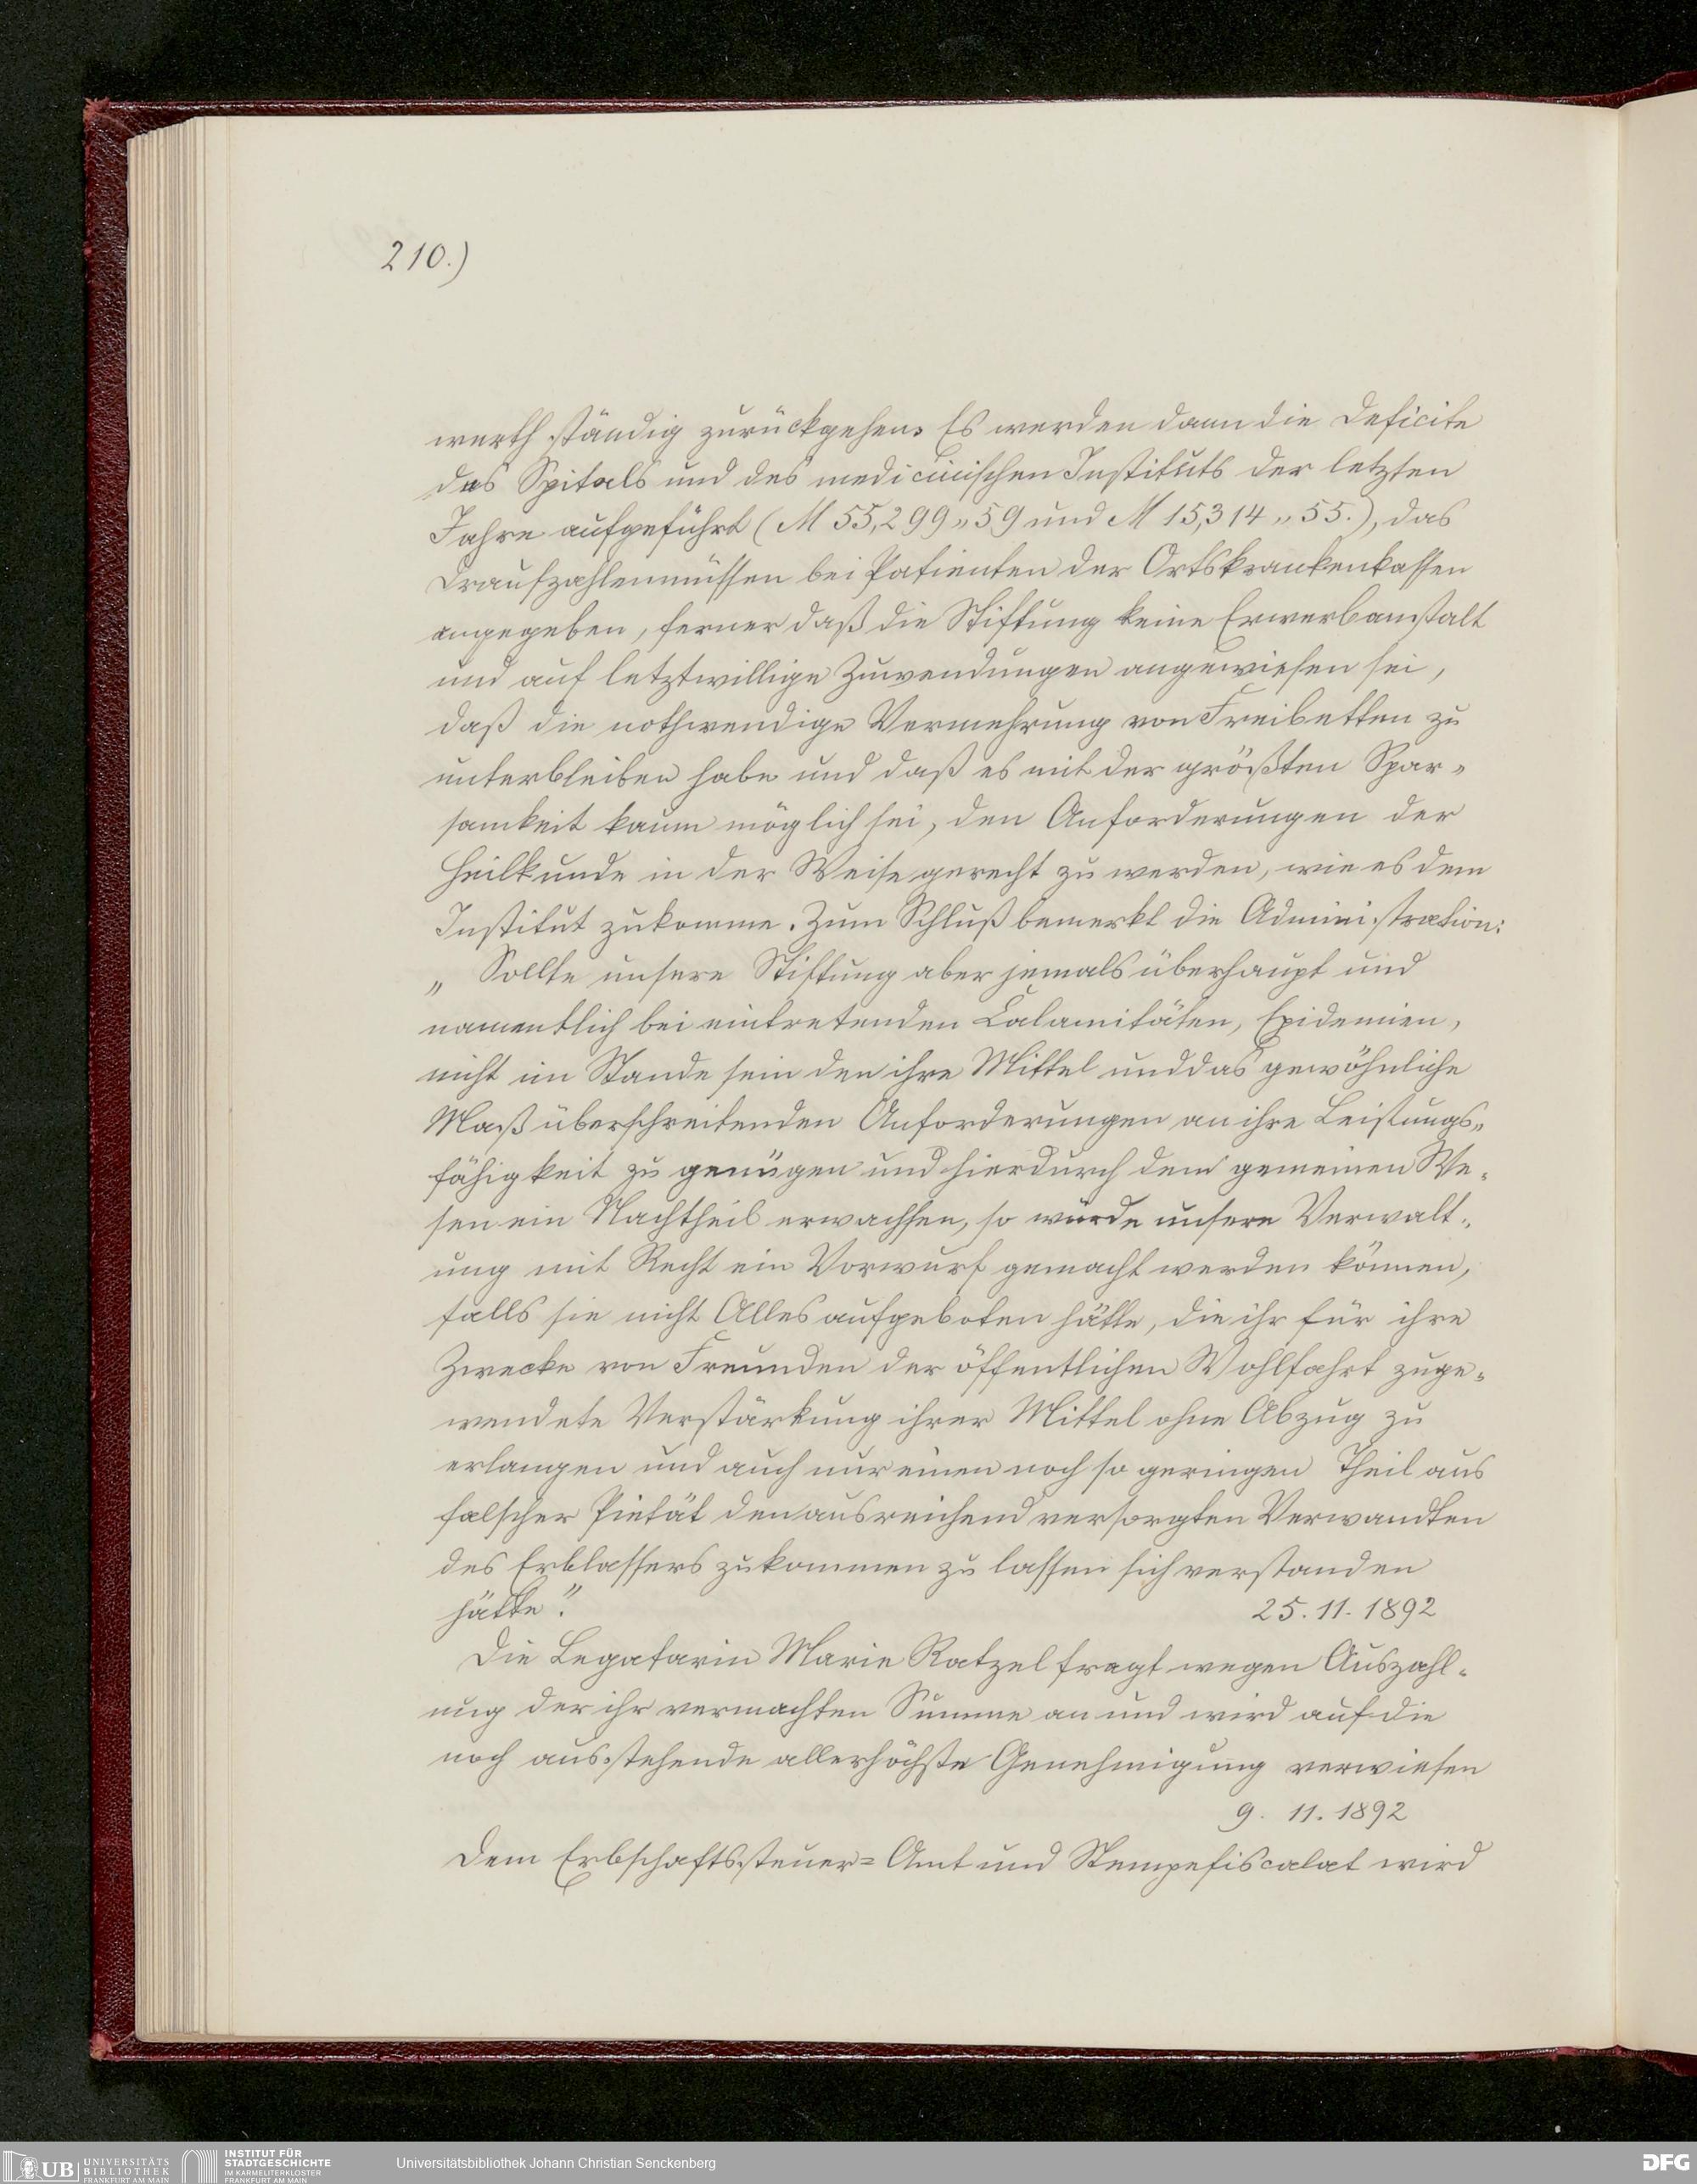 210.)
werth ständig zurückgehen. Es werden dann die Deficite
des Spitals und des medicinischen Instituts der letzten
Jahre aufgeführt (M 55,299„59 und M 15,314„55.), das
Draufzahlenmüssen bei Patienten der Ortskrankenkassen
angegeben, ferner daß die Stiftung keine Erwerbanstalt
und auf letztwillige Zuwendungen angewiesen sei,
daß die nothwendige Vermehrung von Freibetten zu
unterbleiben habe und daß es mit der größten Spar-
samkeit kaum möglich sei, den Anforderungen der
Heilkunde in der Weise gerecht zu werden, wie es dem
Institut zukomme. Zum Schluß bemerkt die Administration:
„Sollte unsere Stiftung aber jemals überhaupt und
namentlich bei eintretenden Calamitäten, Epidemien,
nicht im Stande sein den ihre Mittel und das gewöhnliche
Maß überschreitenden Anforderungen an ihre Leistungs-
fähigkeit zu genügen und hierdurch dem gemeinen We-
sen ein Nachtheil erwachsen, so würde unsere Verwalt-
ung mit Recht ein Vorwurf gemacht werden können,
falls sie nicht Alles aufgeboten hätte, die ihr für ihre
Zwecke von Freunden der öffentlichen Wohlfahrt zuge-
wendete Verstärkung ihrer Mittel ohne Abzug zu
erlangen und auch nur einen noch so geringen Theil aus
falscher Pietät den ausreichend versorgten Verwandten
des Erblassers zukommen zu lassen sich verstanden
hätte". 25.11.1892
Die Legatarin Marie Ratzel fragt wegen Auszahl-
ung der ihr vermachten Summe an und wird auf die
noch ausstehende allerhöchste Genehmigung verwiesen
9. 11. 1892
Dem Erbschaftssteuer=Amt und Stempefiscalat wird
UB UNIVERSITÄTS
BIBLIOTHEK
FRANKFURT AM MAIN
INSTITUT FÜR
STADTGESCHICHTE
IM KARMELITERKLOSTER
FRANKFURT AM MAIN
Universitätsbibliothek Johann Christian Senckenberg
DFG